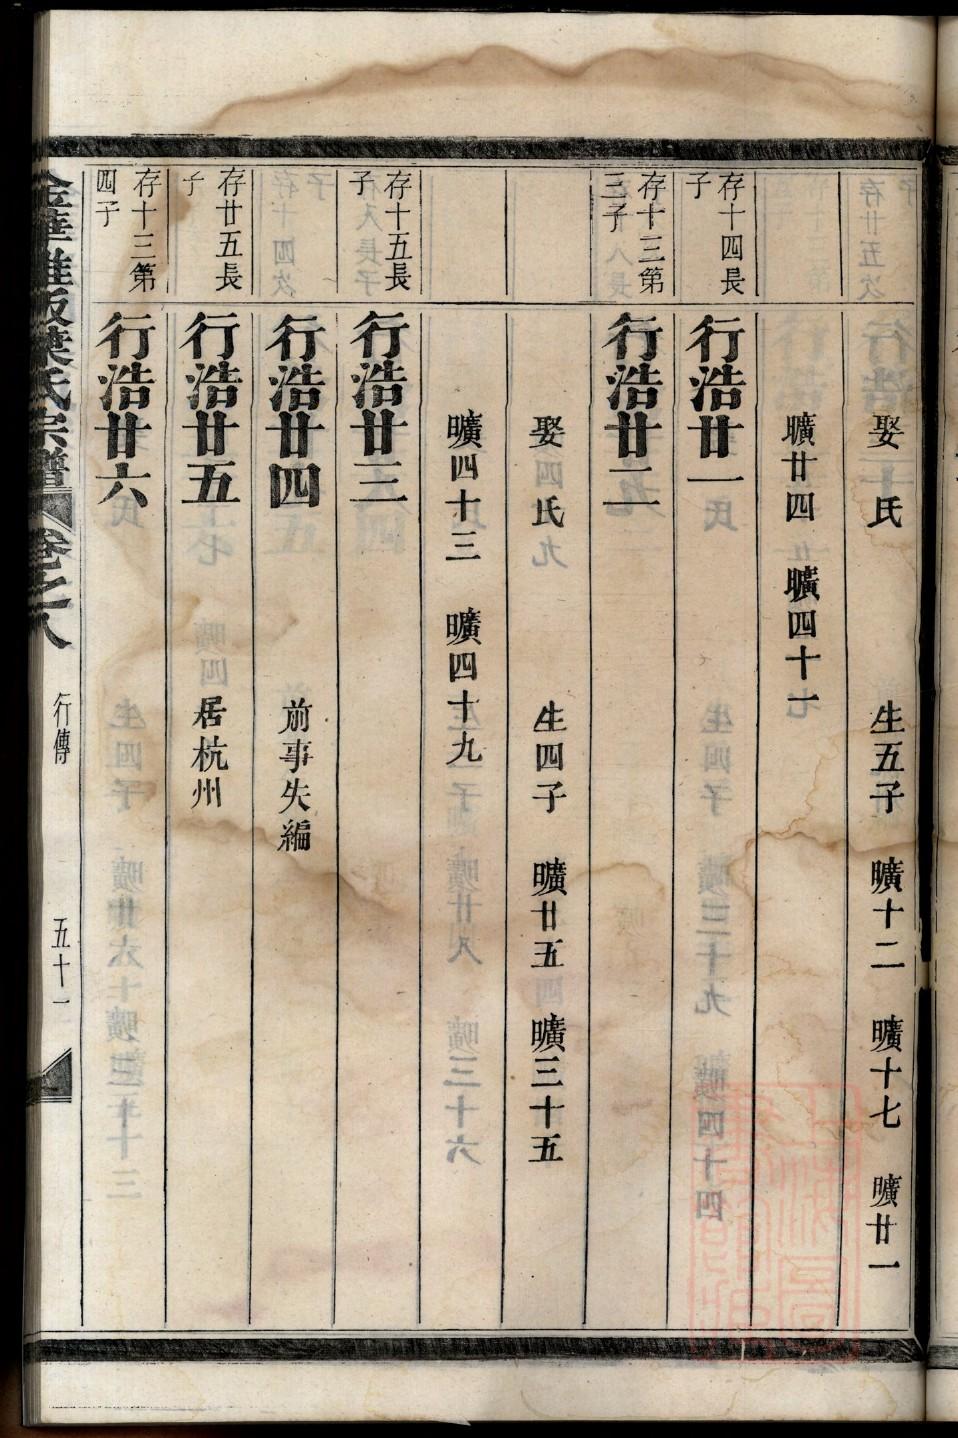 娶 氏 生五子 曠十二 曠十七 曠廿一
曠廿四 曠四十一
存十四長子
行浩廿一
存十三第三子
行浩廿二
娶 氏 生四子 曠廿五 曠三十五
曠四十三 曠四十九
存十五長子
行浩廿三
行浩廿四 前事失編
存廿五長子
行浩廿五 居杭州
存十三第四子
行浩廿六
葉氏宗譜 卷之八 行傳 五十一